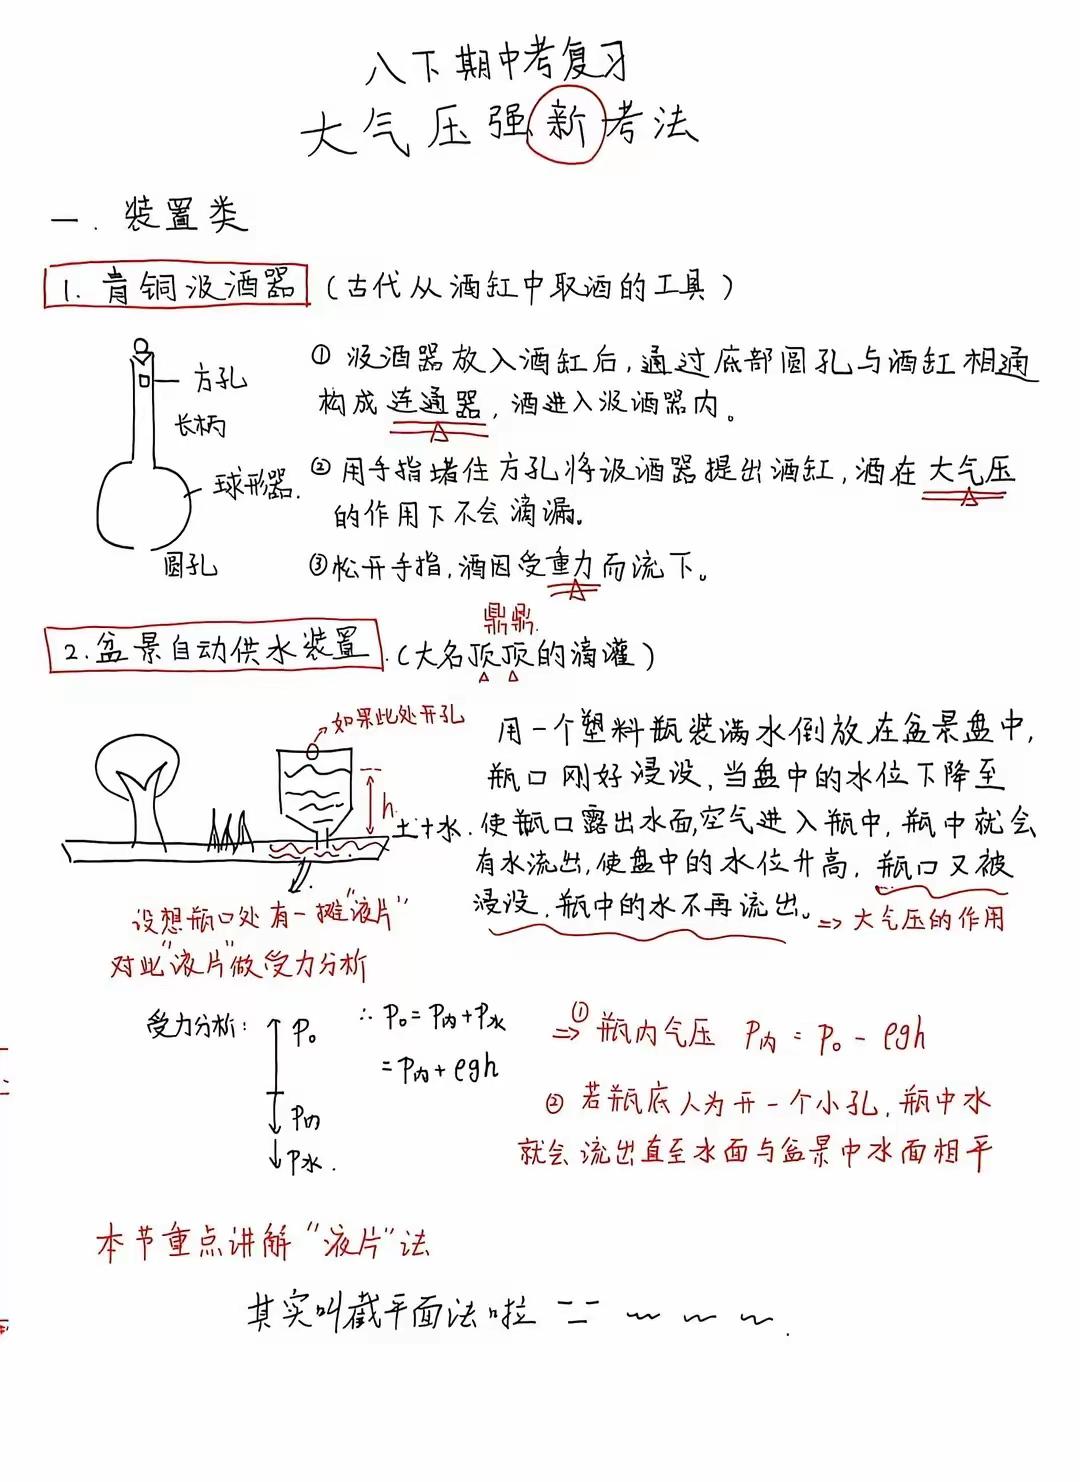 八下期中考复习
大气压强新考法
一.装置类
1.青铜汲酒器(古代从酒缸中取酒的工具)
方孔
长柄
球形器.
圆孔
① 汲酒器放入酒缸后,通过底部圆孔与酒缸相通
构成连通器,酒进入汲酒器内。
② 用手指堵住方孔将汲酒器提出酒缸,酒在大气压
的作用下不会滴漏。
③松开手指,酒因受重力而流下。
鼎鼎.
2.盆景自动供水装置.(大名顶顶的滴灌)
如果此处开孔
h.
土+水.
用一个塑料瓶装满水倒放在盆景盘中,
瓶口刚好浸没,当盘中的水位下降至
使瓶口露出水面,空气进入瓶中,瓶中就会
有水流出,使盘中的水位升高,瓶口又被
浸没.瓶中的水不再流出。⇒大气压的作用
设想瓶口处有一摊“液片”
对此“液片”做受力分析
受力分析:
P₀
P内
P水.
∴ P₀=P内+P水
=P内+ρgh
⇒① 瓶内气压 P内=P₀-ρgh
② 若瓶底人为开一个小孔,瓶中水
就会流出直至水面与盆景中水面相平
本节重点讲解“液片”法
其实叫截平面法啦 二二 ~ ~ ~.